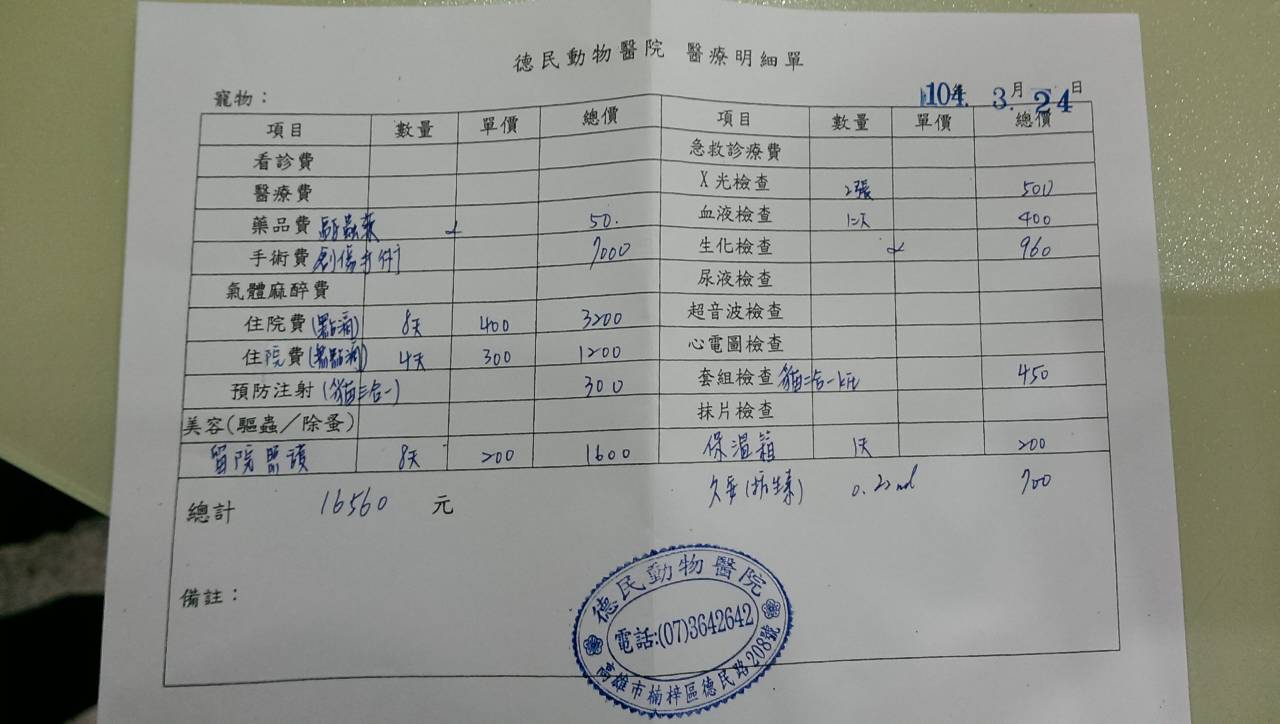 德民動物醫院 醫療明細單
寵物：
104年 3.月 24日
項目 數量 單價 總價 項目 數量 單價 總價
看診費 急救診療費
醫療費 X光檢查 2張 500
藥品費 驅蟲藥 50. 血液檢查 1次 400
手術費 創傷手術 7000 生化檢查 960
氣體麻醉費 尿液檢查
住院費(點滴) 8天 400 3200 超音波檢查
住院費(無點滴) 4天 300 1200 心電圖檢查
預防注射 (貓三合一) 300 套組檢查 貓二合一 450
美容(驅蟲／除蚤) 抹片檢查
留院照護 8天 200 1600 保溫箱 1天 200
總計 16560 元 (抗生素) 700
備註：
德民動物醫院
電話:(07)3642642
高雄市楠梓區德民路208號